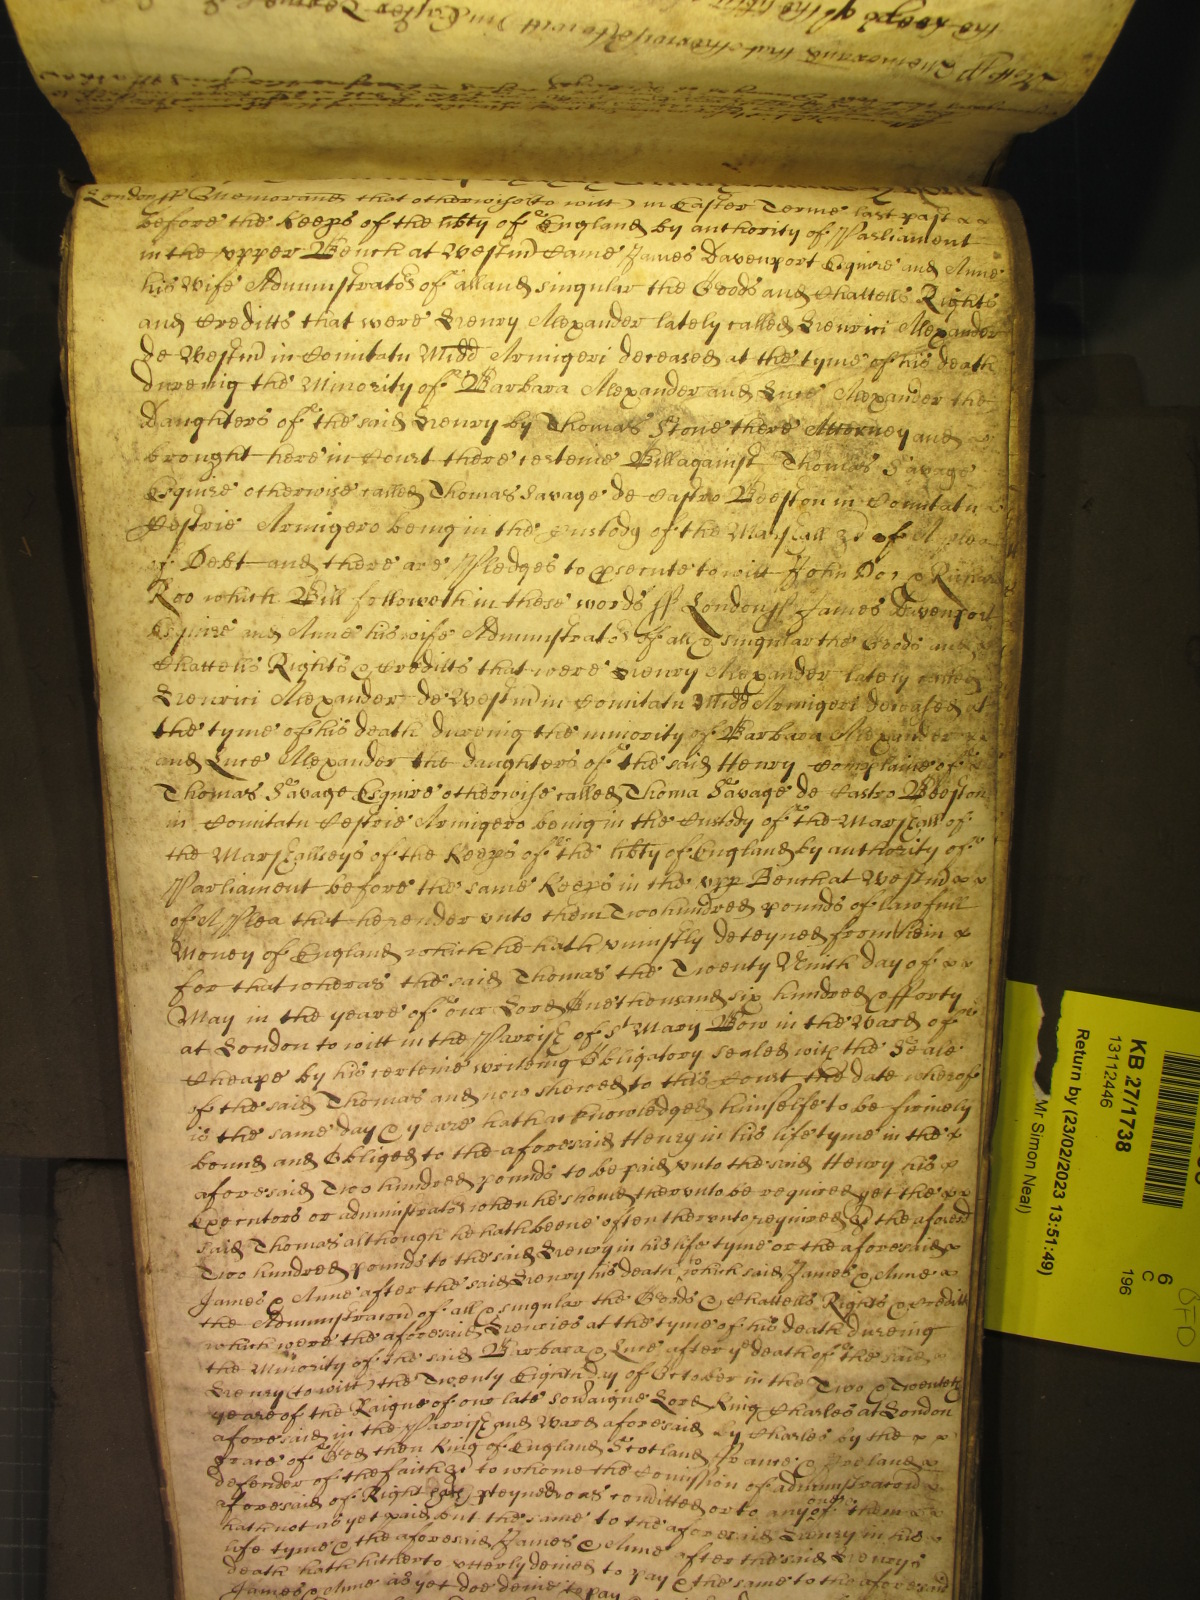 the keeps of the
Memorand that otherwise to witt in Easter Terme
London ss Memorand that otherwise (to witt) in Easter Terme last past
before the Keeps of the libty of England by authority of Parliament
in the upper Bench at Westm Came James Davenport Esquire and Anne
his Wife Administrators of all and singular the Goods and Chattells Rights
and Creditts that were Henry Alexander lately called Henrici Alexander
de Westm in Comitatu Midd Armigeri deceased at the tyme of his death
dureing the Minority of Barbara Alexander and Luce Alexander the
Daughters of the said Henry by Thomas Stone there Attorney and
brought here in Court there certeine Bill against Thomas Savage
Esquire otherwise called Thomas Savage de Castro Beeston in Comitatu
Cestrie Armigero being in the Custody of the Marshall &c of A Plea
of Debt and there are Pledges to psecute to witt John Doe & Richard
Roo which Bill followeth in these words ss London ss James Davenport
Esquire and Anne his wife Administrators of all & singular the Goods and
Chattells Rights & Creditts that were Henry Alexander lately called
Henrici Alexander de Westm in Comitatu Midd Armigeri deceased at
the tyme of his death dureing the minority of Barbara Alexander
and Luce Alexander the daughters of the said Henry Complaine of
Thomas Savage Esquire otherwise called Thoma Savage de Castro Beeston
in Comitatu Cestrie Armigero being in the Custody of the Marshall of
the Marshallseys of the Keeps of the libty of England by authority of
Parliament before the same Keeps in the upp Bench at Westm
of A Plea that he render unto them Two hundred pounds of lawfull
Money of England which he hath uniustly deteyned from them
for that wheras the said Thomas the Twenty Nineth day of
May in the yeare of our Lord One thousand six hundred & fforty
at London to witt in the Parrish of St Mary Bow in the Ward of
Cheape by his certeine writeing Obligatory sealed with the Seale
of the said Thomas and now shewed to this Court the date wherof
is the same day & yeare hath acknowledged himselfe to be firmely
bound and Obliged to the aforesaid Henry in his life tyme in the
aforesaid Two hundred pounds to be paid unto the said Henry his
Executors or administrators when he should therunto be required yet the
said Thomas although he hath beene often therunto required &c the aforesd
Two hundred pounds to the said Henry in his life tyme or the aforesaid
James & Anne after the said Henry his death to which said James & Anne
the Administracon of all & singular the Goods & Chattells Rights & Creditts
which were the aforesaid Henries at the tyme of his death dureing
the Minority of the said Barbara & Luce after ye death of the said
Henry (to witt) the Twenty Eighth day of October in the Two & Twentieth
yeare of the Raigne of our late Soveraigne Lord King Charles at London
aforesaid in the Parrish and Ward aforesaid by Charles by the
grace of God then King of England Scotland ffrance & Ireland
defender of the faith &c to whome the Comission of administracon
aforesaid of Right pteyned was comitted or to any of them
hath not as yet paid but the same to the aforesaid Henry in his
life tyme & the aforesaid James & Anne after the said Henrys
death hath hitherto utterly denied to pay & the same to the aforesaid
James & Anne as yet doe denie to pay
KB 27/1738
13112446
Return by (23/02/2023 13:51:49)
Mr Simon Neal)
6
C
196